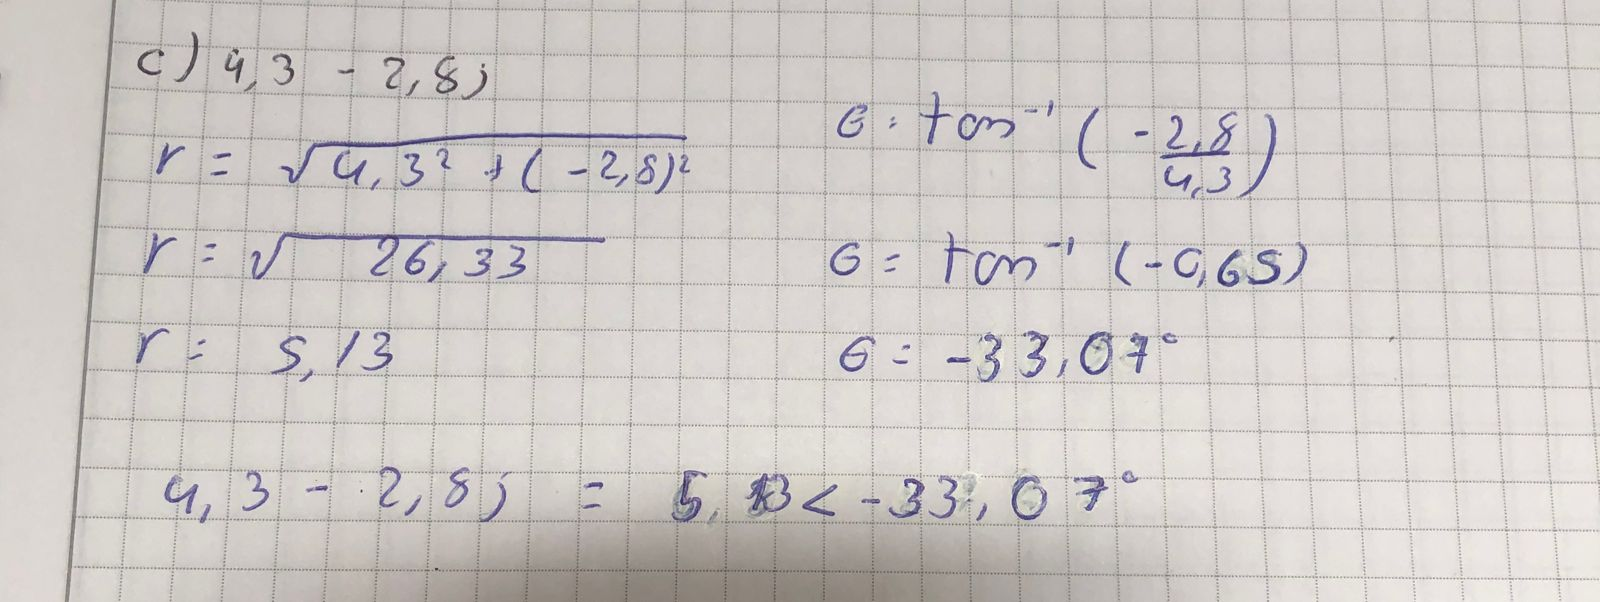 c) 4,3 - 2,8j
r = √4,3² + (-2,8)²
r = √26,33
r = 5,13
θ = tan⁻¹ (-2,8/4,3)
θ = tan⁻¹ (-0,65)
θ = -33,07°
4,3 - 2,8j = 5,13 < -33,07°